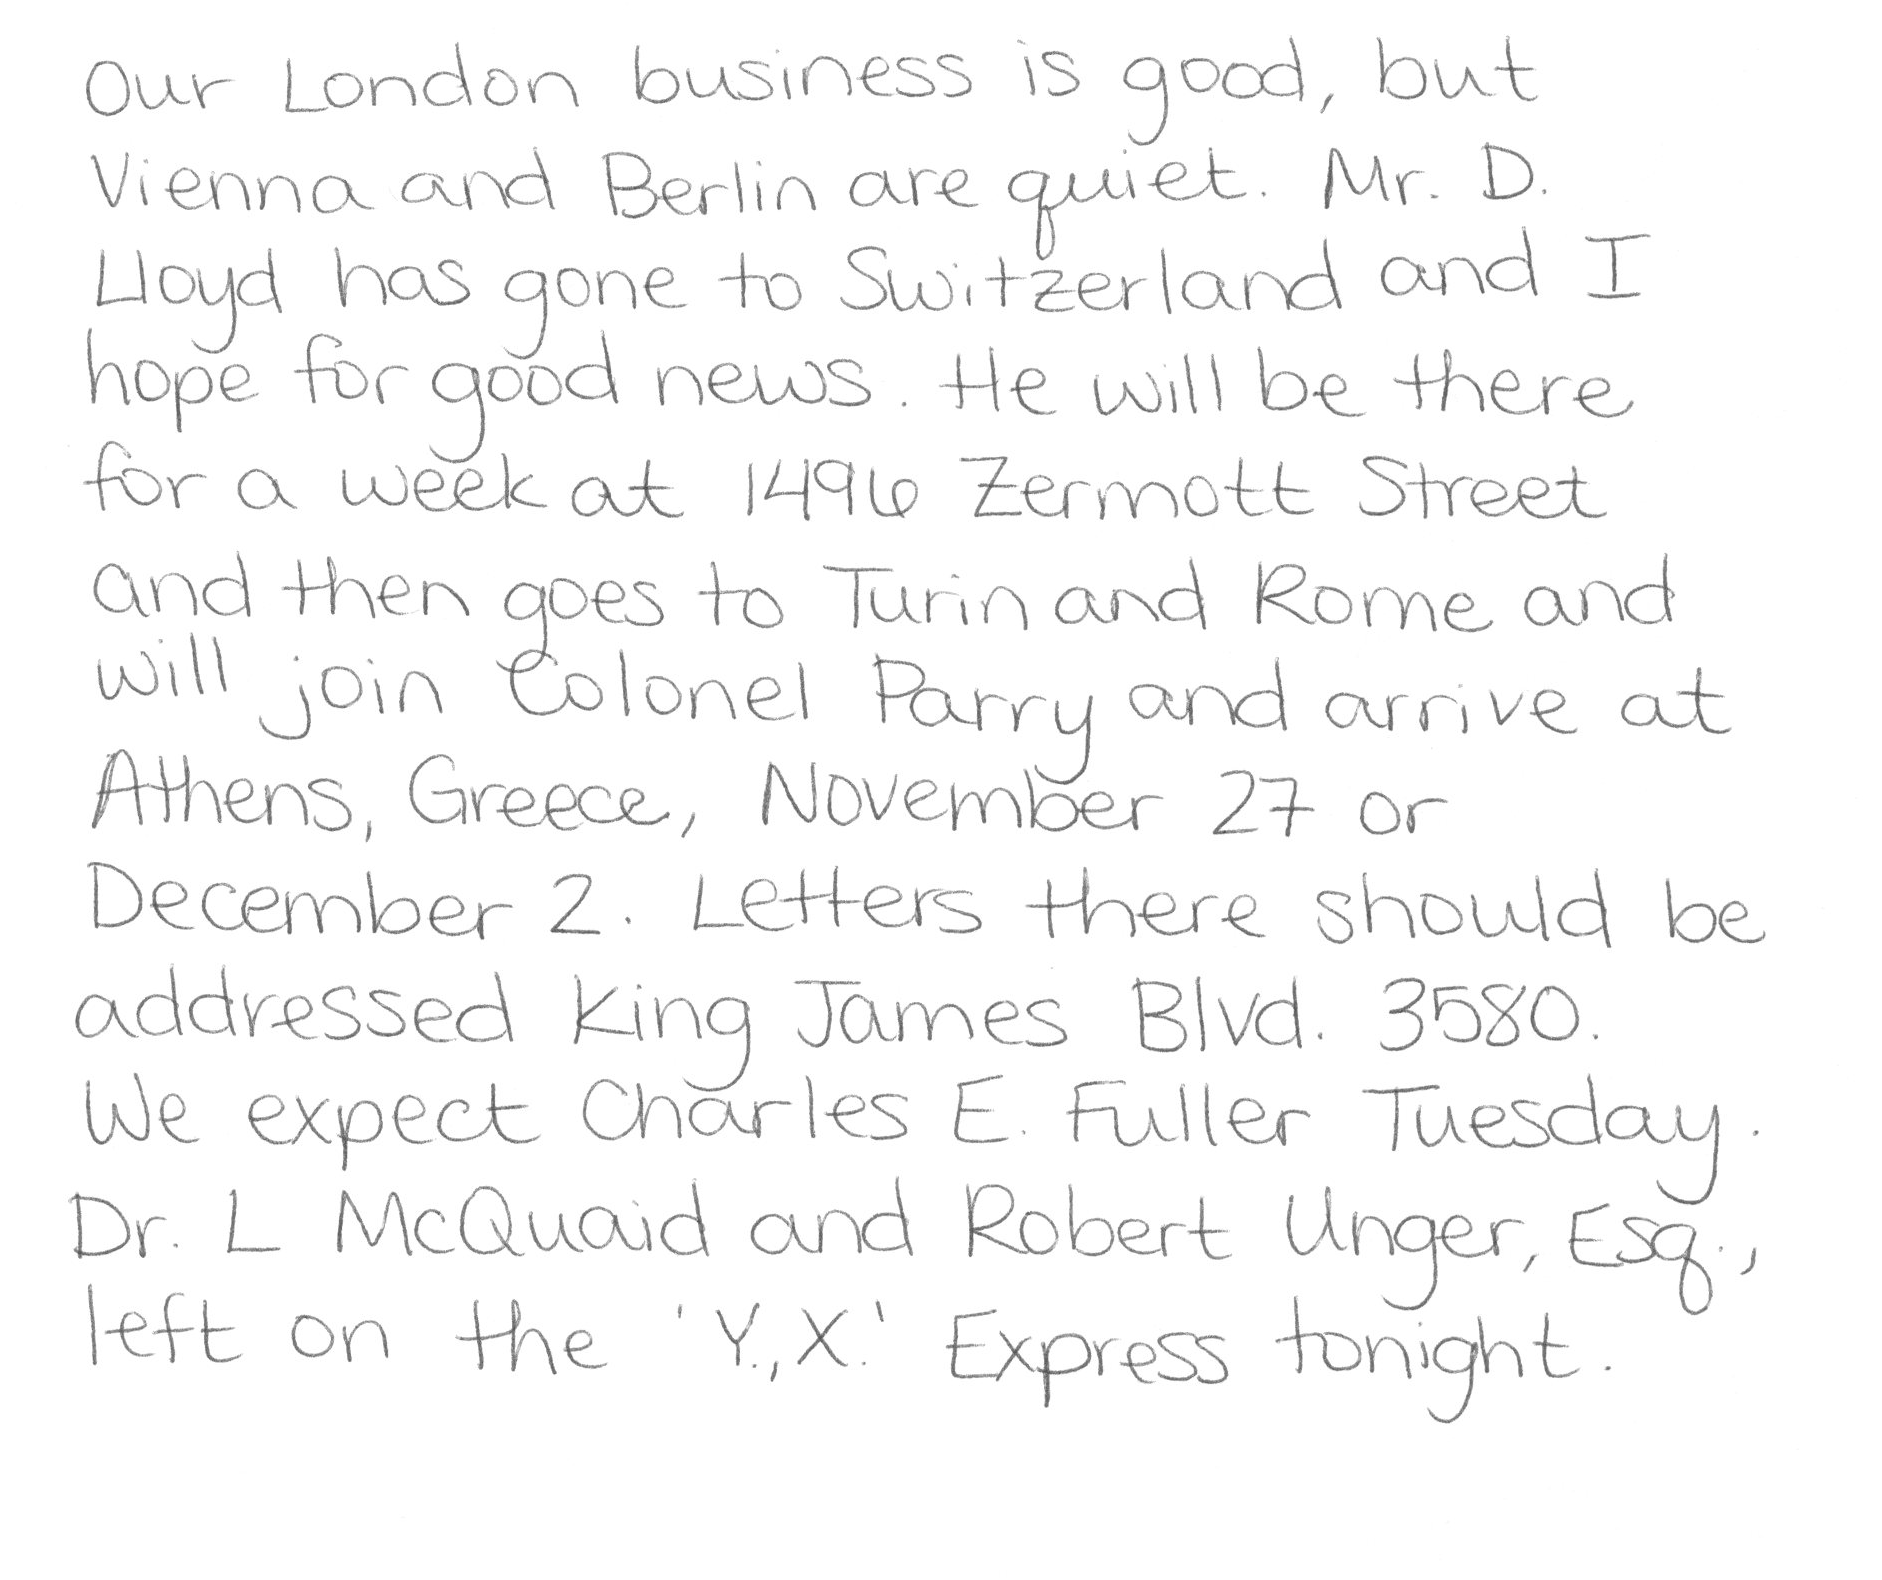 Our London business is good, but
Vienna and Berlin are quiet. Mr. D.
Lloyd has gone to Switzerland and I
hope for good news. He will be there
for a week at 1496 Zermott Street
and then goes to Turin and Rome and
will join Colonel Parry and arrive at
Athens, Greece, November 27 or
December 2. Letters there should be
addressed King James Blvd. 3580.
We expect Charles E. Fuller Tuesday.
Dr. L McQuaid and Robert Unger, Esq.,
left on the 'Y.,X.' Express tonight.